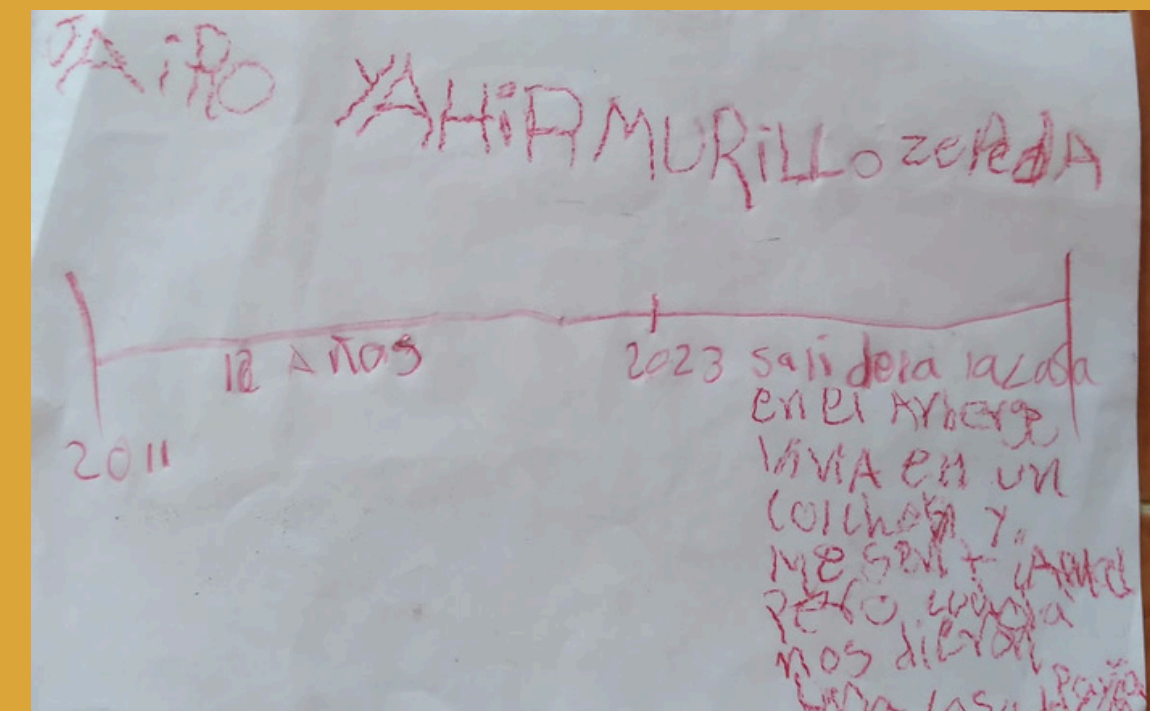 JAiRO YAHiR MURiLLO zepedA
12 AÑOS
2011
2023 sali dela la casa
en el Arberge
ViviA en un
colchon y
me senti A mal
pero
nos dieron
una casa